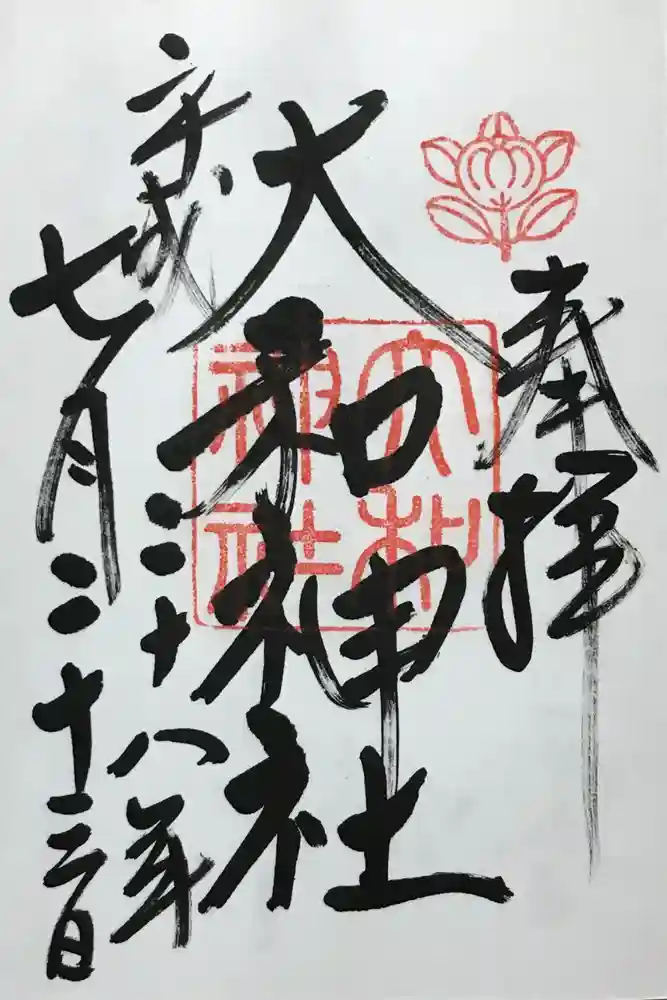 奉拝
大和神社
平成二十八年
七月二十三日
大和
神社